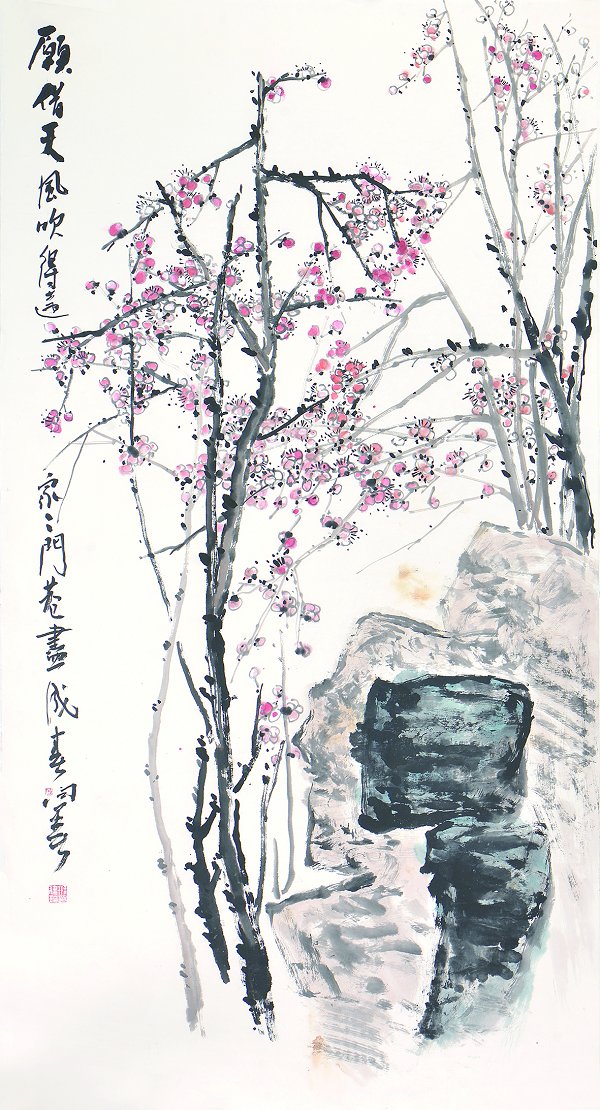 願借天風吹得遠
家〻門巷盡成春